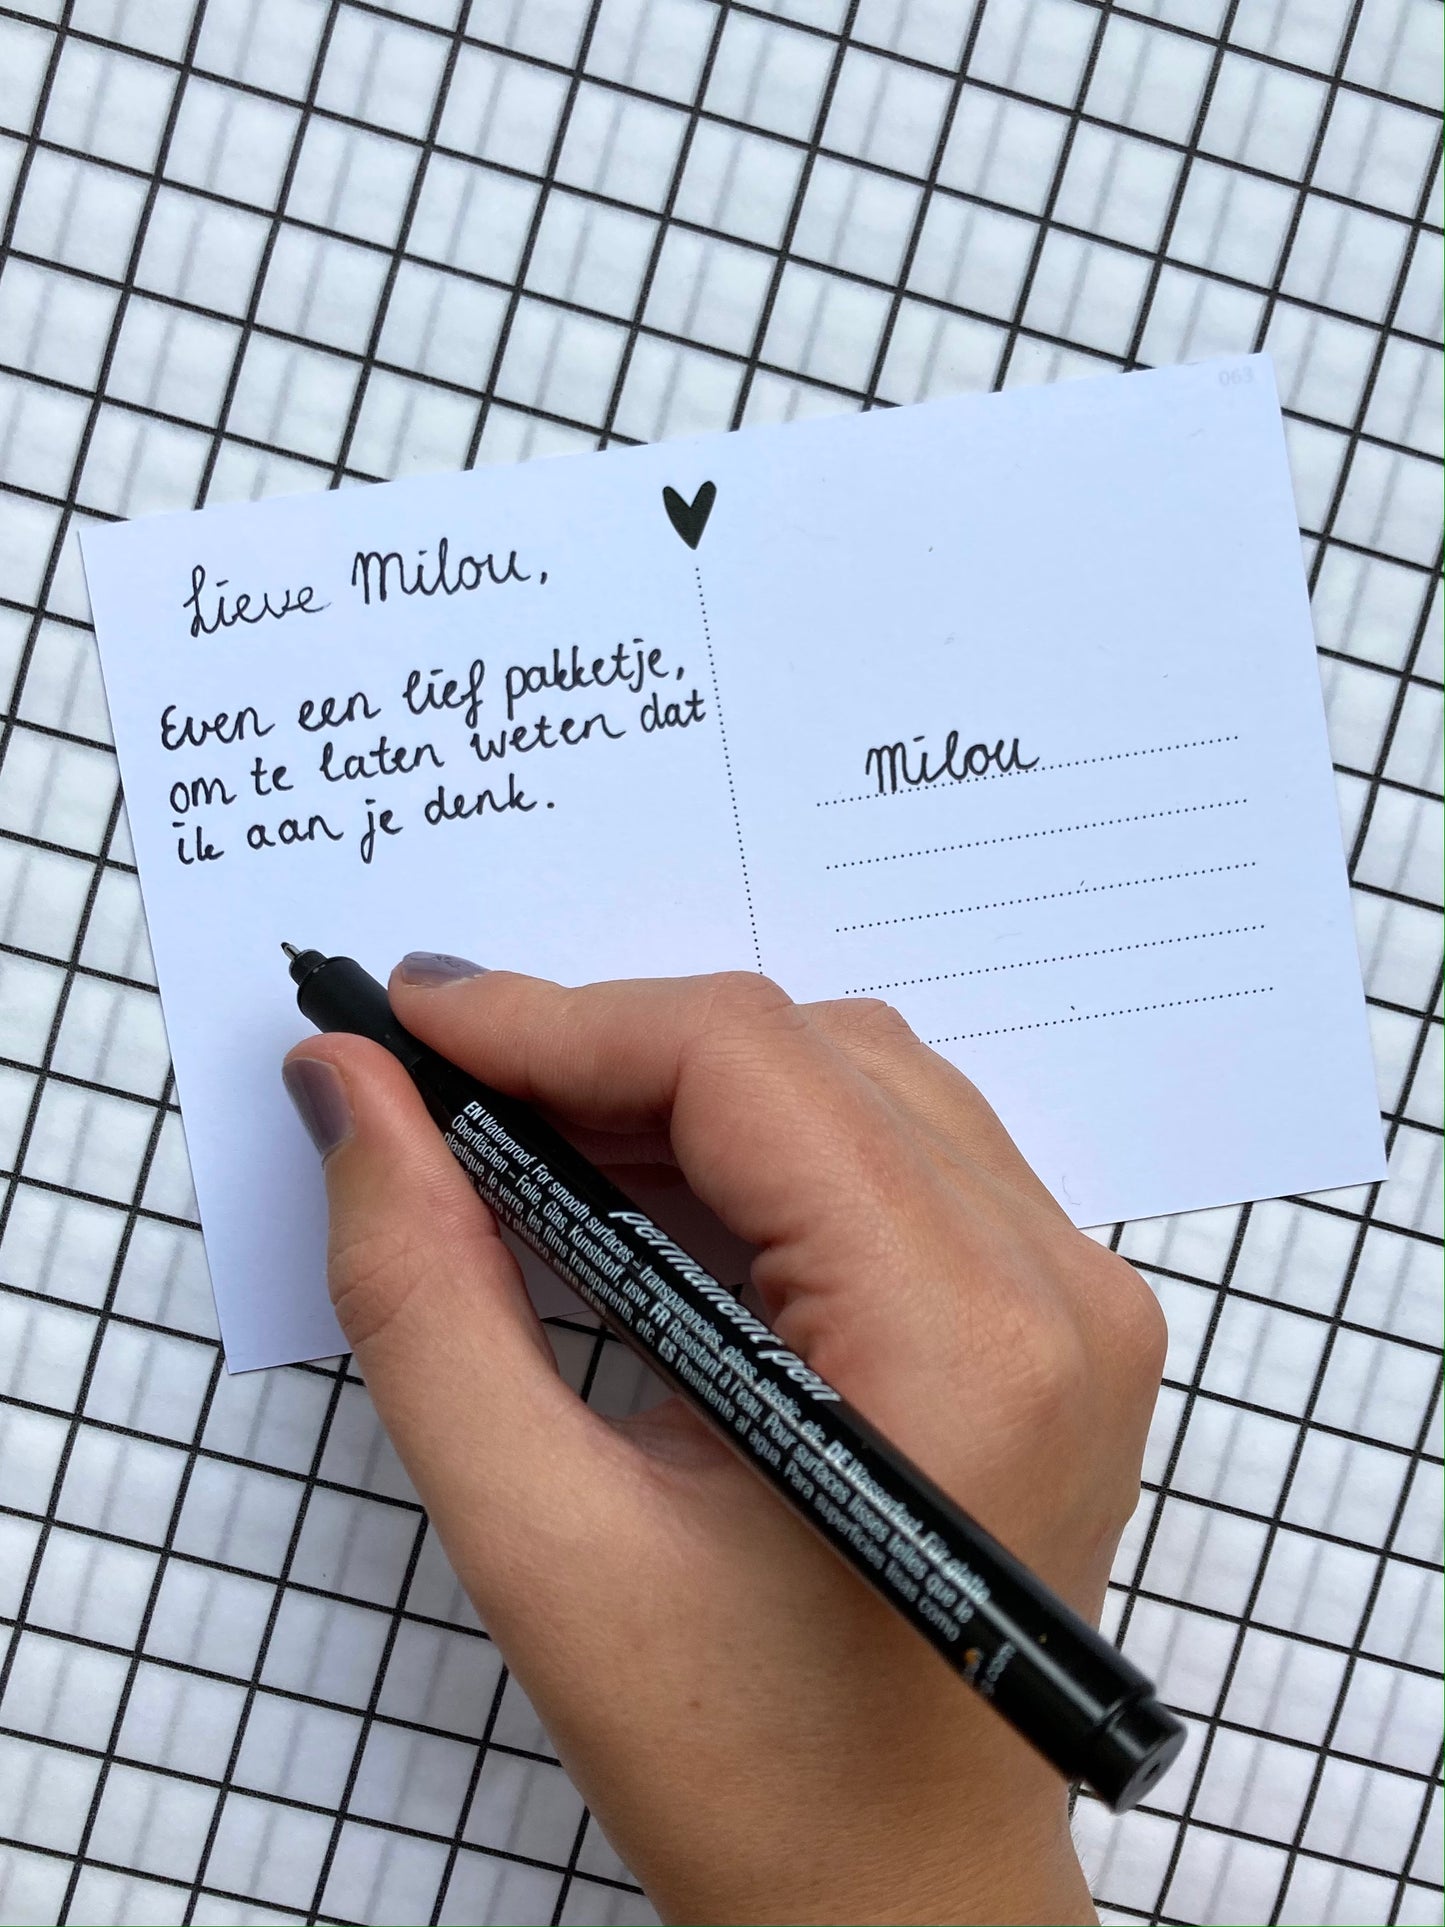 063
Lieve Milou,
Even een lief pakketje,
om te laten weten dat
ik aan je denk.
Milou
permanent pen
EN Waterproof. For smooth surfaces – transparencies, glass, plastic, etc. DE Wasserfest. Für glatte
Oberflächen – Folie, Glas, Kunststoff, usw. FR Résistant à l'eau. Pour surfaces lisses telles que le
plastique, le verre, les films transparents, etc. ES Resistente al agua. Para superficies lisas como
vidrio y plástico, entre otras.